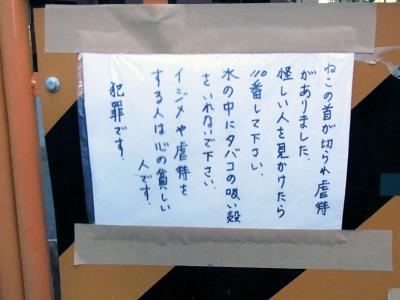 ねこの首が切られ虐待
がありました。
怪しい人を見かけたら
110番して下さい。
水の中にタバコの吸い殻
をいれないで下さい。
イジメや虐待を
する人は心の貧しい
人です。
犯罪です。